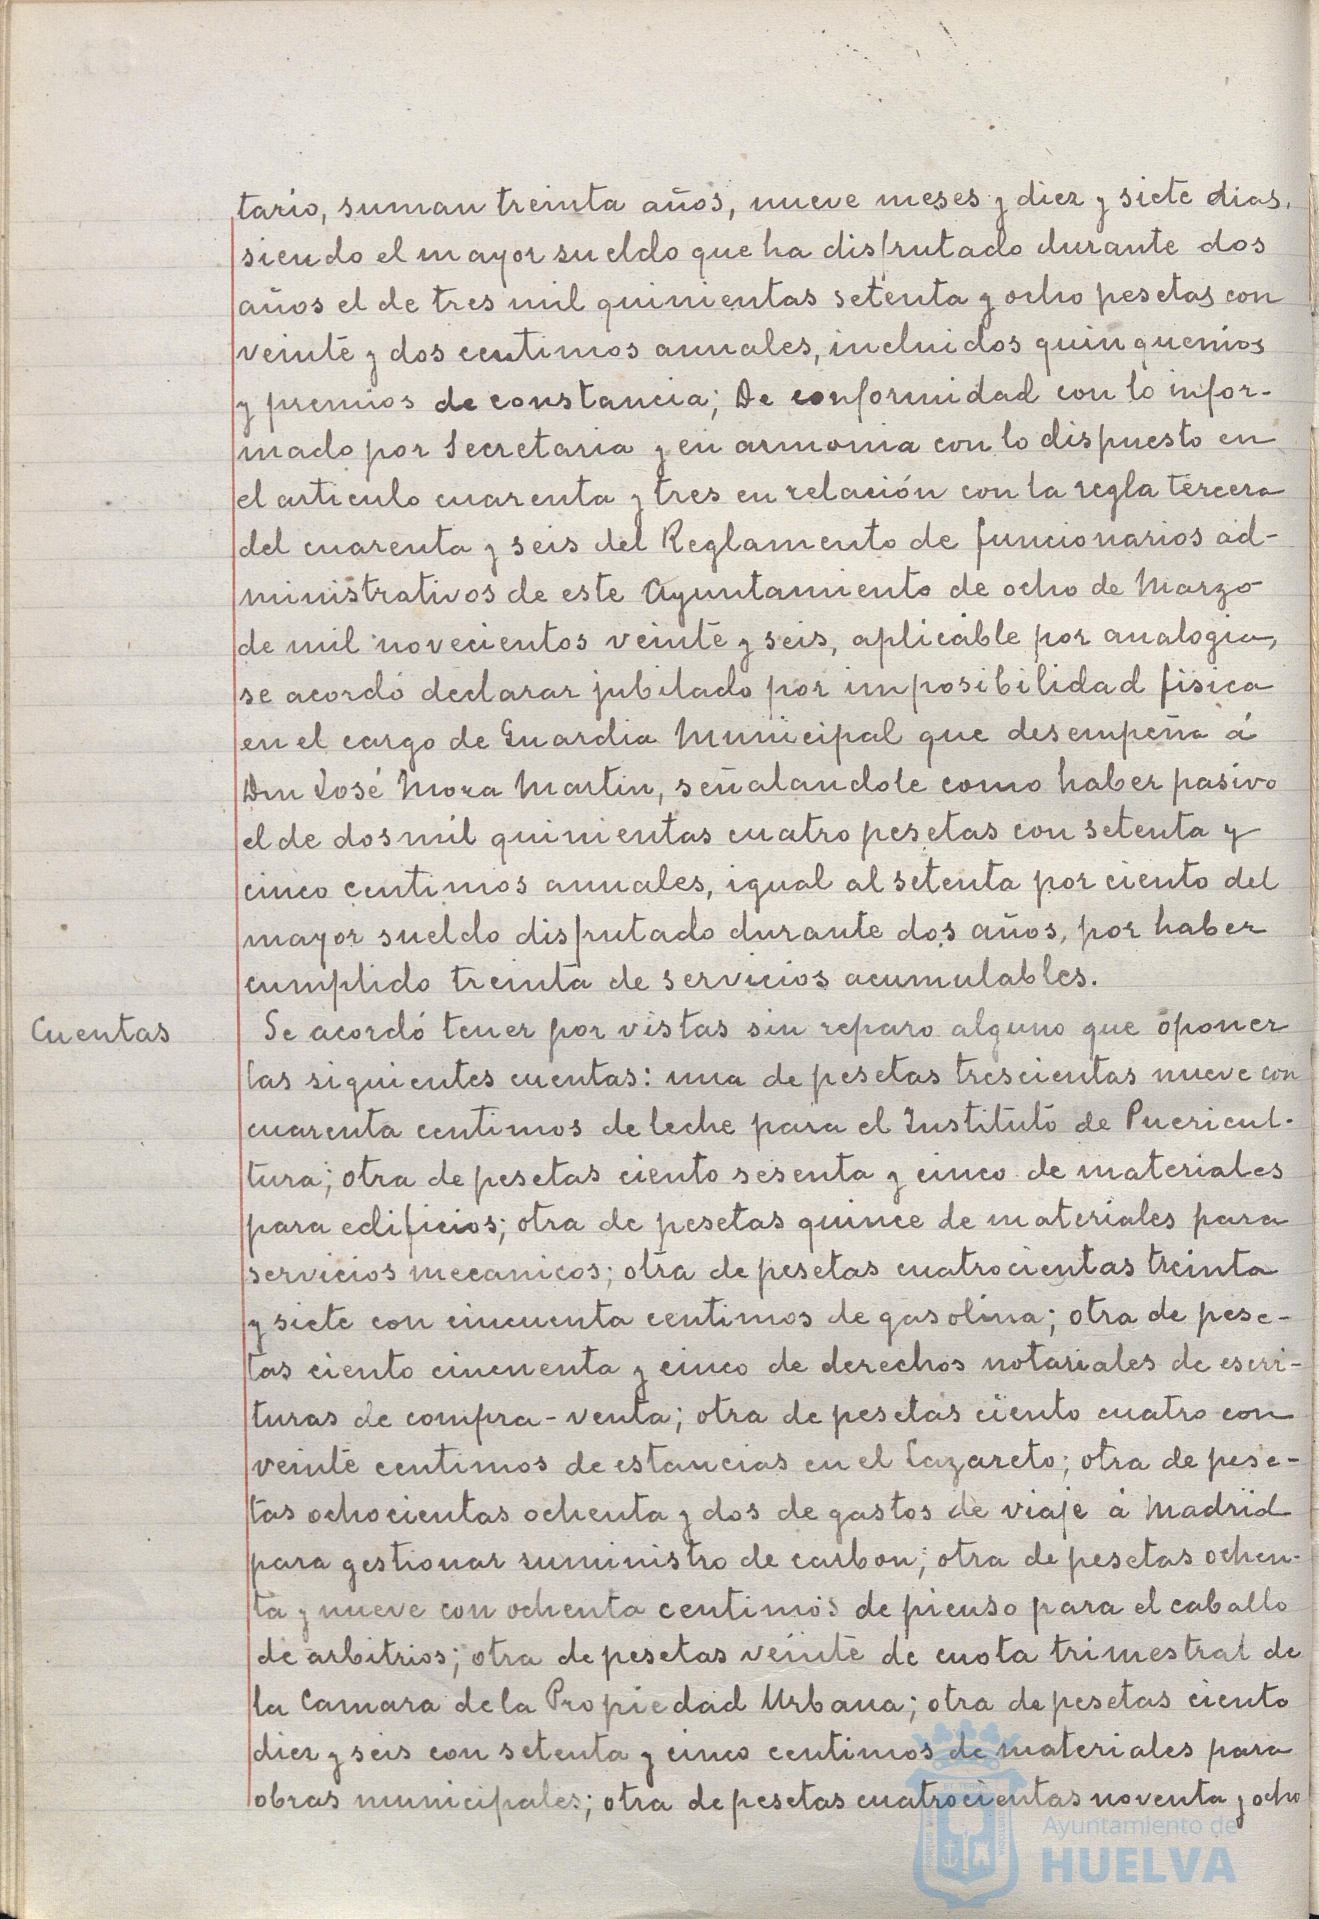 tario, suman treinta años, nueve meses y diez y siete dias,
siendo el mayor sueldo que ha disfrutado durante dos
años el de tres mil quinientas setenta y ocho pesetas con
veinte y dos centimos anuales, incluidos quinquenios
y premios de constancia; De conformidad con lo infor-
mado por Secretaria y en armonia con lo dispuesto en
el articulo cuarenta y tres en relación con la regla tercera
del cuarenta y seis del Reglamento de funcionarios ad-
ministrativos de este Ayuntamiento de ocho de Marzo
de mil novecientos veinte y seis, aplicable por analogia,
se acordó declarar jubilado por imposibilidad fisica
en el cargo de Guardia Municipal que desempeña á
Don José Mora Martin, señalandole como haber pasivo
el de dos mil quinientas cuatro pesetas con setenta y
cinco centimos anuales, igual al setenta por ciento del
mayor sueldo disfrutado durante dos años, por haber
cumplido treinta de servicios acumulables.
Cuentas Se acordó tener por vistas sin reparo alguno que oponer
las siguientes cuentas: una de pesetas trescientas nueve con
cuarenta centimos de leche para el Instituto de Puericul-
tura; otra de pesetas ciento sesenta y cinco de materiales
para edificios; otra de pesetas quince de materiales para
servicios mecanicos; otra de pesetas cuatrocientas treinta
y siete con cincuenta centimos de gasolina; otra de pese-
tas ciento cincuenta y cinco de derechos notariales de escri-
turas de compra-venta; otra de pesetas ciento cuatro con
veinte centimos de estancias en el Lazareto; otra de pese-
tas ochocientas ochenta y dos de gastos de viaje á Madrid
para gestionar suministro de carbon; otra de pesetas ochen-
ta y nueve con ochenta centimos de pienso para el caballo
de arbitrios; otra de pesetas veinte de cuota trimestral de
la Camara de la Propiedad Urbana; otra de pesetas ciento
diez y seis con setenta y cinco centimos de materiales para
obras municipales; otra de pesetas cuatrocientas noventa y ocho
Ayuntamiento de
HUELVA